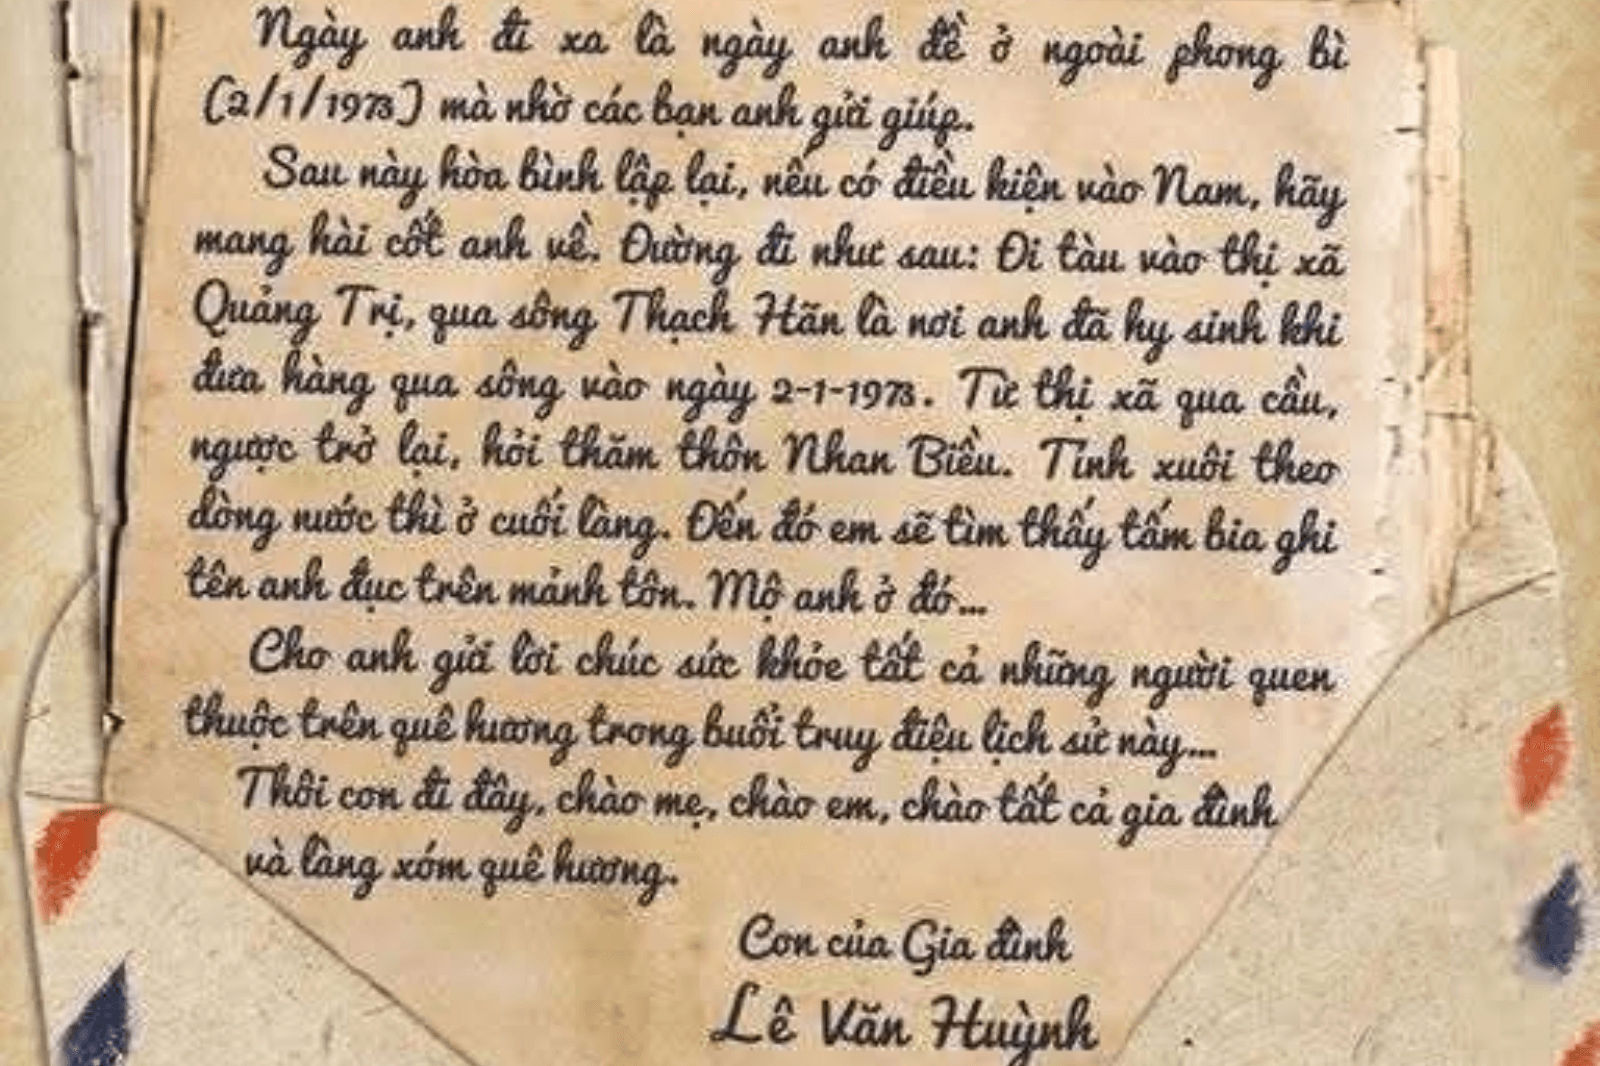 Ngày anh đi xa là ngày anh đề ở ngoài phong bì
(2/1/1973) mà nhờ các bạn anh gửi giúp.
Sau này hòa bình lập lại, nếu có điều kiện vào Nam, hãy
mang hài cốt anh về. Đường đi như sau: Đi tàu vào thị xã
Quảng Trị, qua sông Thạch Hãn là nơi anh đã hy sinh khi
đưa hàng qua sông vào ngày 2-1-1973. Từ thị xã qua cầu,
ngược trở lại, hỏi thăm thôn Nhan Biều. Tính xuôi theo
dòng nước thì ở cuối làng. Đến đó em sẽ tìm thấy tấm bia ghi
tên anh đục trên mảnh tôn. Mộ anh ở đó...
Cho anh gửi lời chúc sức khỏe tất cả những người quen
thuộc trên quê hương trong buổi truy điệu lịch sử này...
Thôi con đi đây, chào mẹ, chào em, chào tất cả gia đình
và làng xóm quê hương.
Con của Gia đình
Lê Văn Huỳnh